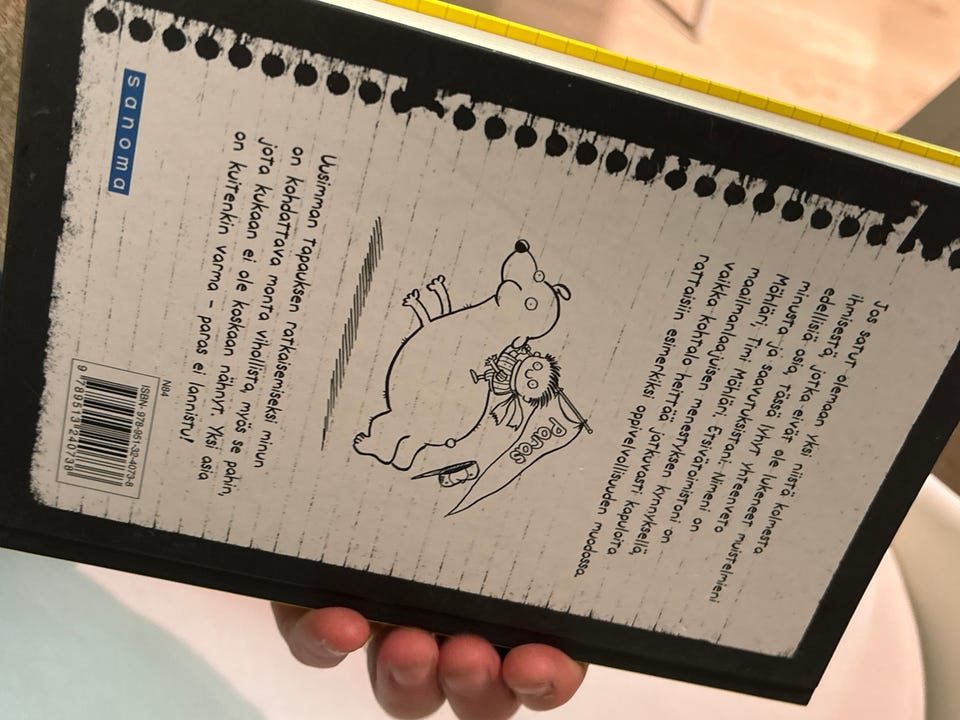 Jos satut olemaan yksi niistä kolmesta
ihmisestä, jotka eivät ole lukeneet muistelmieni
edellisiä osia, tässä lyhyt yhteenveto
minusta ja saavutuksistani: Nimeni on
Möhläri, Timi Möhläri. Etsivätoimistoni on
maailmanlaajuisen menestyksen kynnyksellä,
vaikka kohtalo heittää jatkuvasti kapuloita
rattaisiin esimerkiksi oppivelvollisuuden muodossa.
Paras
Uusimman tapauksen ratkaisemiseksi minun
on kohdattava monta vihollista, myös se pahin,
jota kukaan ei ole koskaan nähnyt. Yksi asia
on kuitenkin varma – paras ei lannistu!
sanoma
N84
ISBN 978-951-32-4073-8
9 789513 240738